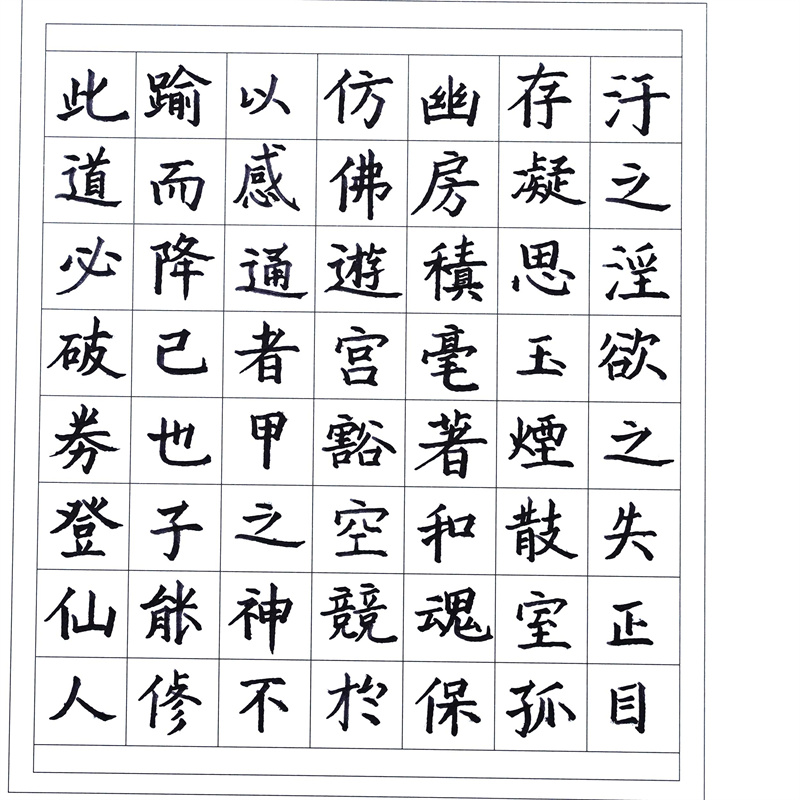 汙之淫欲之失正目
存凝思玉煙散室孤
幽房稹毫著和魂保
仿佛遊宮豁空競於
以感通者甲之神不
踰而降己也子能修
此道必破券登仙人